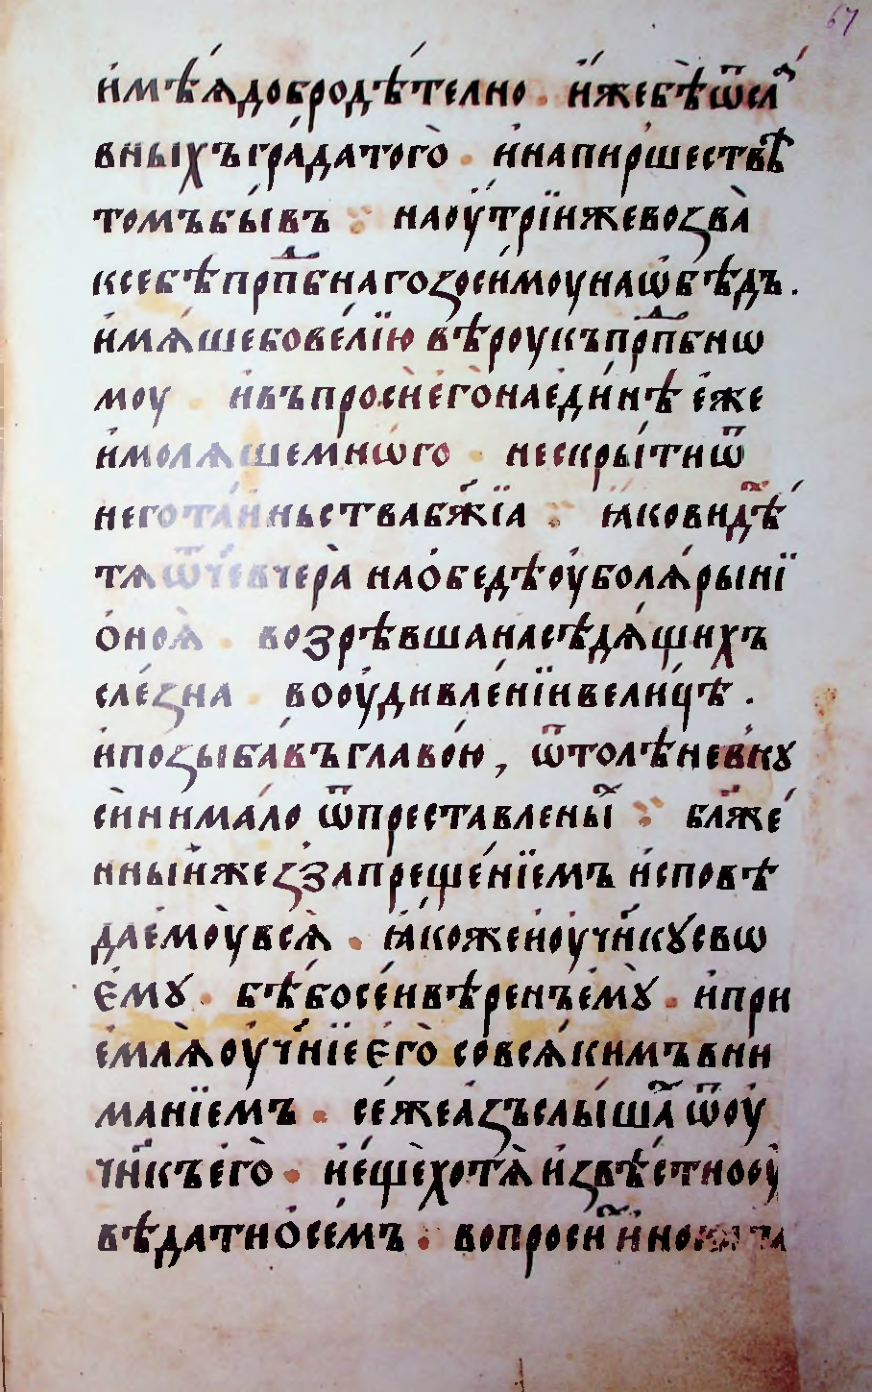 67
и҆мѣ́ѧдобродѣ́телно . и҆́жебѣ̀ѿсла́
вныхъгра́датого̀ . и҆напиршествѣ
томъбы́въ : наоу҆́трїижевозва̀
ксебѣпрпⷣбнагозоси́моунаѡ҆бѣдъ .
и҆мѧ́шебовелїю вѣ́роукъпрпⷣбнѡ
моу . и҆въпросѝе҆го̀наеди́нѣ е҆́же
и҆молѧ́шемнѡ́го . нескры́тиѿ
негота́иньствабж҃їа : ꙗ҆́ковидѣ́
тѧѿч҃евчера̀ наѻ҆бедѣоу҆болѧ́рынї
ѻ҆ноѧ̀ . возрѣ́вшанасѣдѧ́щихъ
сле́зна вооу҆дивле́нїивели́цѣ .
и҆позыба́въглаво́ю , ѿтолѣневкꙋ
сѝнима́ло ѿпреставлены́ : блж҃е́
нныи҆жесзапреще́нїемъ и҆сповѣ
дае҆моу̀всѧ̀ . ꙗ҆́кожеиоу҆чн҃кꙋсвѡ
е҆мꙋ . бѣ́босе́ивѣ́ренъе҆мꙋ̀ . и҆при
е҆млѧ̀оу҆чн҃їе е҆го̀ совсѧ́кимъвни
манїемъ . се́жеа҆́зъслы́ша ѿоу҆
чн҃къе҆го̀ . и҆е҆щѐхотѧ̀и҆звѣ́стнооу҆
вѣ́датиѻ҆се́мъ . вопроси